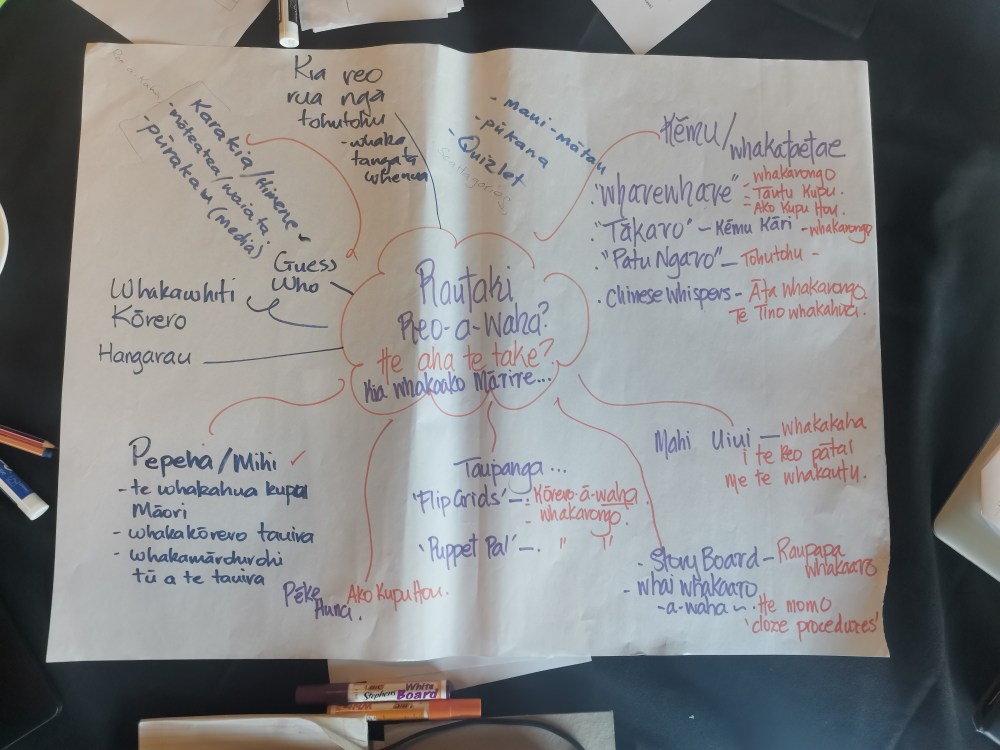 Kia reo
rua ngā
tohutohu
- whaka
tangata
whenua
Karakia/Himene
- mōteatea/waiata
- pūrakau (media)
- maui-mātau
- pūkana
- Quizlet
Kēmu/
whakataetae
. "wharewhare" - whakarongo
- Tautu Kupu.
- Ako Kupu Hou.
. "Tākaro" - Kēmu Kāri - whakarongo
. "Patu Ngaro" - Tohutohu -
. Chinese Whispers - Āta whakarongo
Te Tino whakahua.
Guess
Who
Whakawhiti
Kōrero
Hangarau
Rautaki
Reo-a-Waha?
He aha te take?
Kia whakaako Mārire...
Pepeha/Mihi ✓
- te whakahua kupu
Māori
- whakakōrero tauira
-
tū a te tauira
Pēke
Huna.
Ako Kupu Hou.
Taupanga ...
'Flip Grids' - - Kōrero-ā-waha.
- whakarongo.
'Puppet Pal' - . " "
Mahi Uiui - whakakaha
i te Reo pātai
me te whakautu.
. Story Board - Raupapa
whakaaro
- whai whakaaro
-a-waha - . He momo
'cloze procedures'
Stephens White
Board